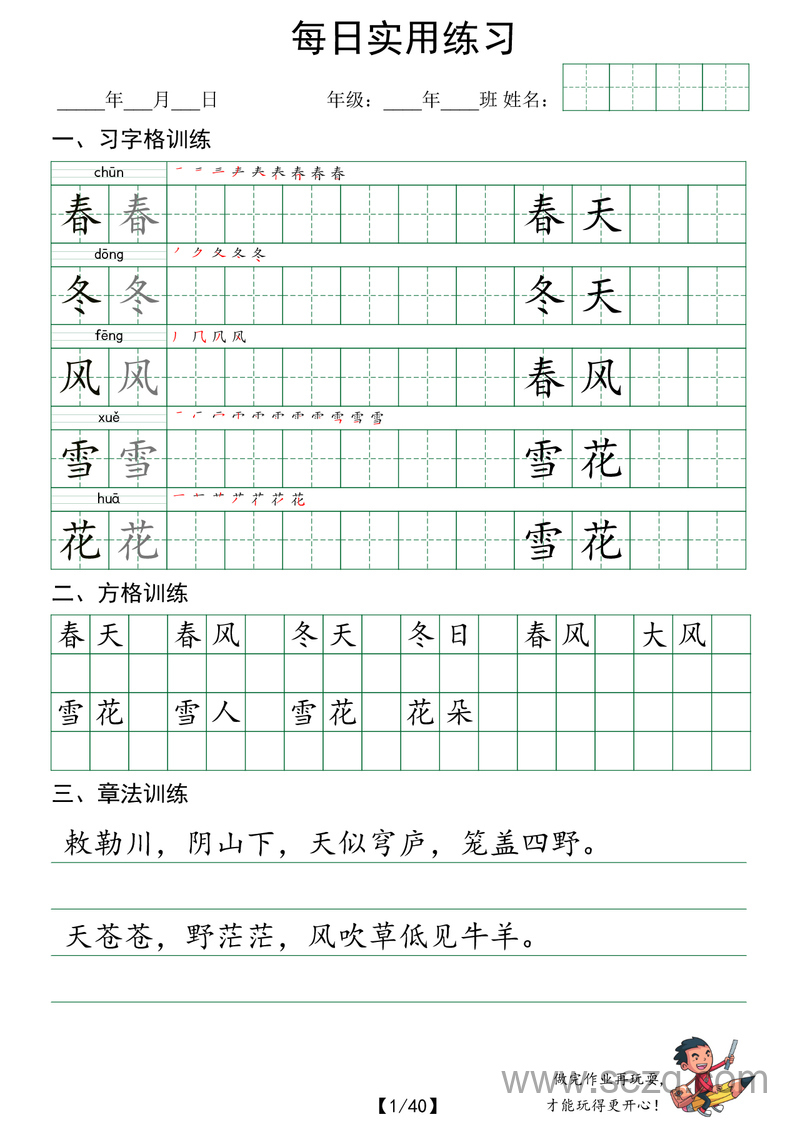 每日实用练习
_____年___月___日 年级：____年____班 姓名：
一、习字格训练
chūn
春 春 春 天
dōng
冬 冬 冬 天
fēng
风 风 春 风
xuě
雪 雪 雪 花
huā
花 花 雪 花
二、方格训练
春天 春风 冬天 冬日 春风 大风
雪花 雪人 雪花 花朵
三、章法训练
敕勒川，阴山下，天似穹庐，笼盖四野。
天苍苍，野茫茫，风吹草低见牛羊。
做完作业再玩耍，
才能玩得更开心！
www.sczq.com
【1/40】